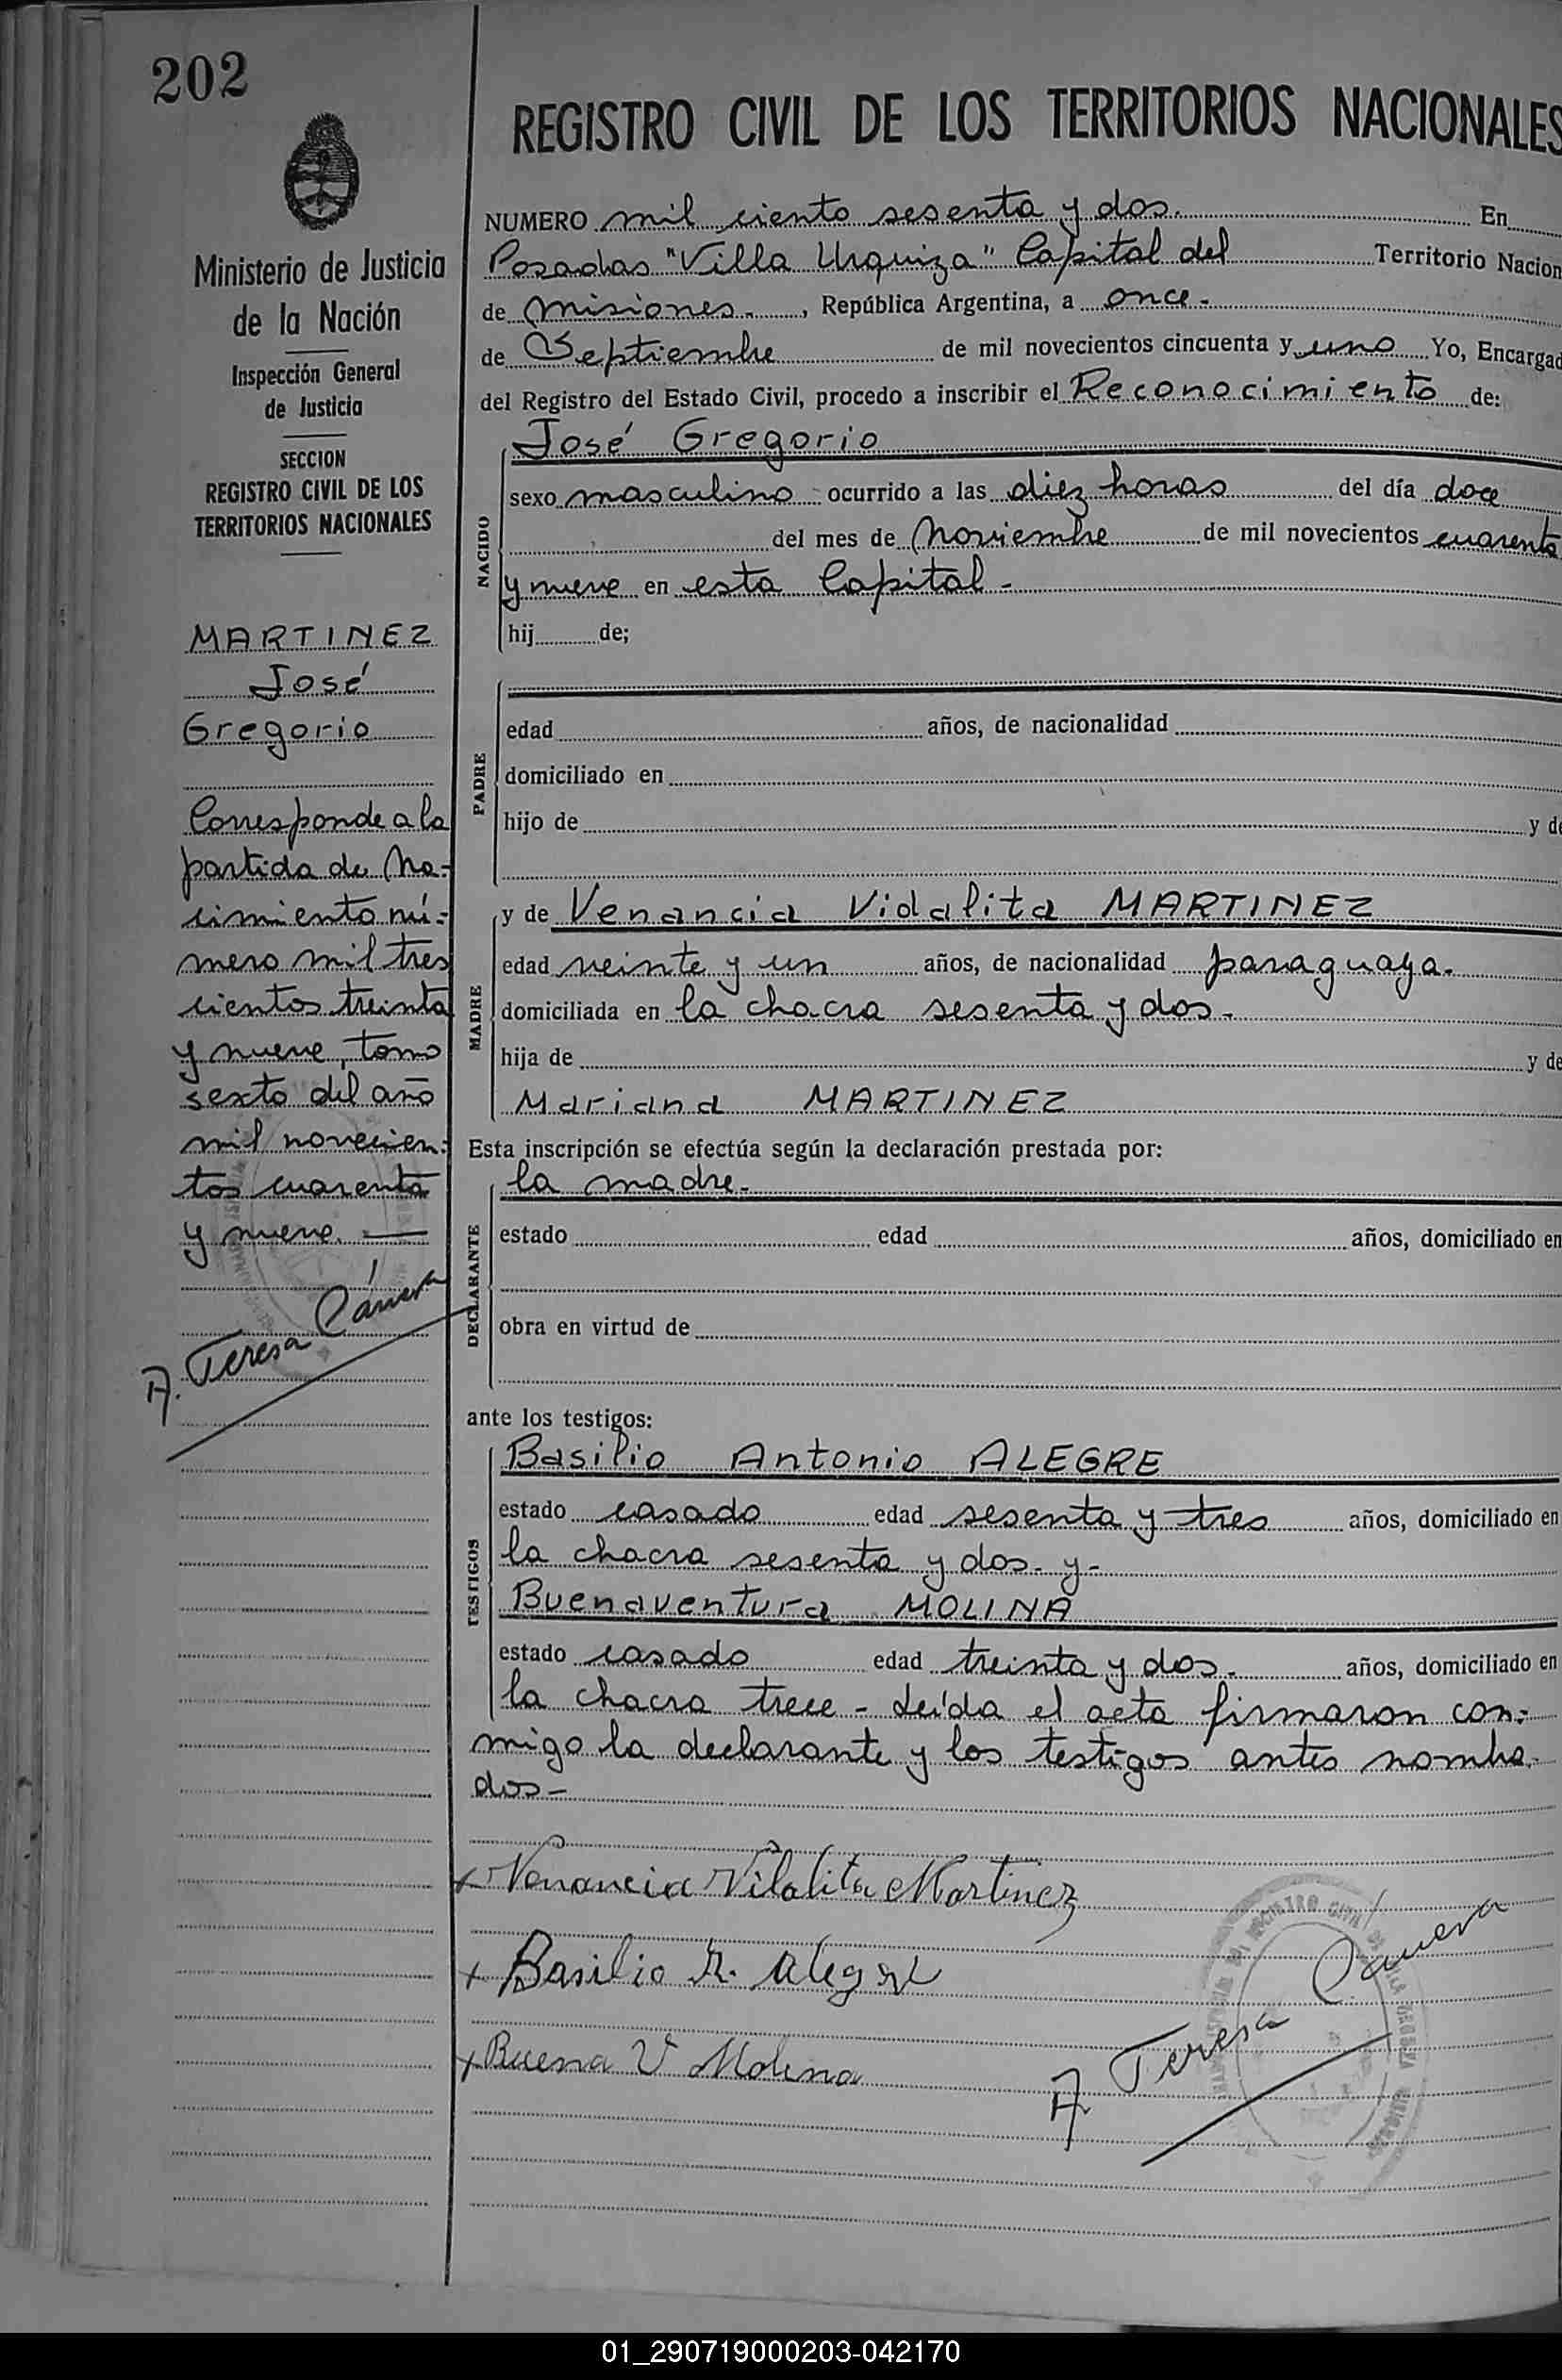 202
Ministerio de Justicia
de la Nación
Inspección General
de Justicia
SECCION
REGISTRO CIVIL DE LOS
TERRITORIOS NACIONALES
MARTINEZ
José
Gregorio
Corresponde a la
partida de Na-
cimiento nú-
mero mil tres
cientos treinta
y nueve, tomo
sexto del año
mil novecien-
tos cuarenta
y nueve.
A. Teresa
REGISTRO CIVIL DE LOS TERRITORIOS NACIONALES
NUMERO mil ciento sesenta y dos. En
Posadas "Villa Urquiza" Capital del Territorio Nacion
de Misiones., República Argentina, a once-
de Septiembre de mil novecientos cincuenta y uno Yo, Encargad
del Registro del Estado Civil, procedo a inscribir el Reconocimiento de:
NACIDO
José Gregorio
sexo masculino ocurrido a las diez horas del día doce
del mes de Noviembre de mil novecientos cuarenta
y nueve en esta Capital-
hij de;
PADRE
edad años, de nacionalidad
domiciliado en
hijo de y de
MADRE
y de Venancia Vidalita MARTINEZ
edad veinte y un años, de nacionalidad paraguaya.
domiciliada en la chacra sesenta y dos.
hija de y de
Mariana MARTINEZ
Esta inscripción se efectúa según la declaración prestada por:
DECLARANTE
la madre.
estado edad años, domiciliado en
obra en virtud de
ante los testigos:
TESTIGOS
Basilio Antonio ALEGRE
estado casado edad sesenta y tres años, domiciliado en
la chacra sesenta y dos. y-
Buenaventura MOLINA
estado casado edad treinta y dos. años, domiciliado en
la chacra trece - Leída el acta firmaron con-
migo la declarante y los testigos antes nombra-
dos-
Venancia Vilalita Martinez
Basilio A. Alegre
Buena V Molina
A Teresa
01_290719000203-042170